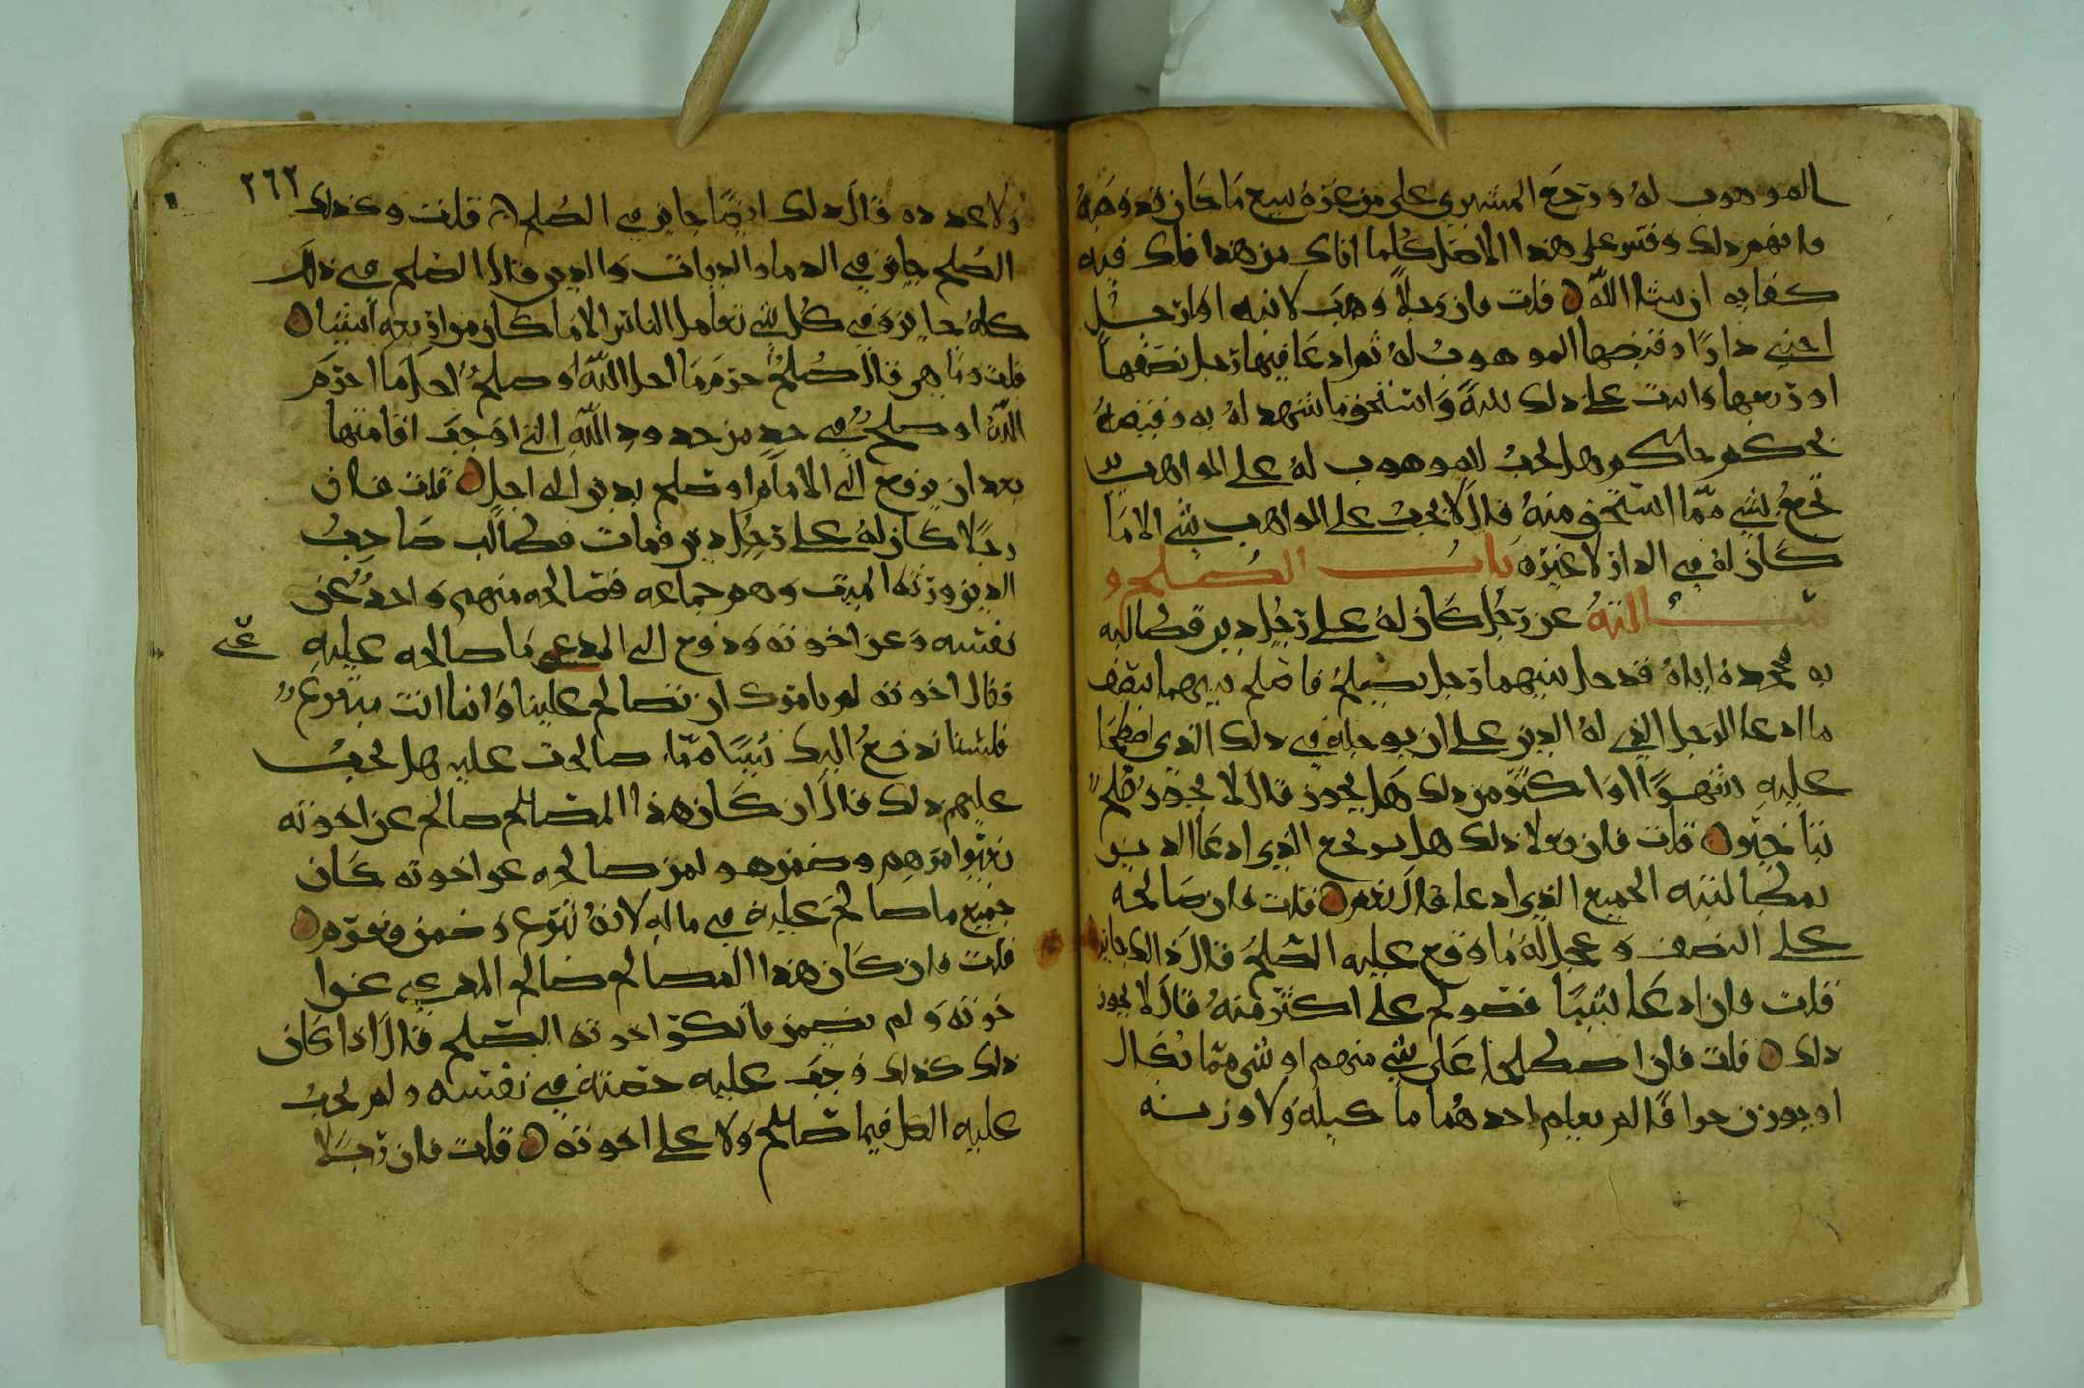 الموهوب له ورجع المشتري على من غره ببيع ما كان قد وهبه
فافهم ذلك وقس على هذا الاصل كلما اتاك من هذا فان فيه
كفايه ان شا الله قلت فان رجلا وهب لابنه او لرجل
اجنبي دارا وقبضها الموهوب له ثم ادعا فيها رجل نصفها
او ربعها واثبت على ذلك بينة واستحق ما شهد له به وقبضه
بحكم حاكم هل يجب للموهوب له على الواهب
يرجع بشي مما استحق منه قال لا يجب على الواهب شي الا ما
كان له في الدار لا غيره باب الصلح و
سالته عن رجل كان له على رجل دين فطالبه
به فجحده اياه فدخل بينهما رجل يصلح فاصلح بينهما بنصف
ما ادعا الرجل الذي له الدين على ان يوجله في ذلك الذي اصطلحا
عليه شهرا او اكثر من ذلك هل يجوز قال لا يجوز صلح
بتاخير قلت فان فعلا ذلك هل يرجع الذي ادعا الدين
بمطالبته الجميع الذي ادعا قال نعم قلت فان صالحه
على النصف وعجل له ما وقع عليه الصلح قال ذلك جايز
قلت فان ادعا شيا فصولح على اكثر منه قال لا يجوز
ذلك قلت فان اصطلحا على شي منهم او شي مما يكال
او يوزن جزافا لم يعلم احدهما ما كيله ولا وزنه
٢٦٢
ولا عدده قال ذلك ايضا جايز في الصلح قلت وكذلك
الصلح جايز في الدما والديات والدين قال الصلح في ذلك
كله جايز وفي كل شي تعامل الناس الا ما كان من اربعه اشيا
قلت وما هي قال صلح حرم ما احل الله او صلح احل ما حرم
الله او صلح في حد من حدود الله التي اوجب اقامتها
بعد ان يرفع الى الامام او صلح بدين الى اجل قلت فان
رجلا كان له على رجل دين فمات فطالب صاحب
الدين ورثة الميت وهم جماعه فصالحه منهم واحد عن
نفسه وعن اخوته ودفع الى المدعي ما صالحه عليه
فقال اخوته لم نامرك ان تصالح علينا وانما انت متبرع
فلسنا ندفع اليك شيا مما صالحت عليه هل يجب
عليهم ذلك قال ان كان هذا المصالح صالح عن اخوته
بغير امرهم وضمن هو لمن صالحه عن اخوته كان
جميع ما صالح عليه في ماله لانه تبرع وضمن وتغرم
قلت فان كان هذا المصالح صالح المدعي عن ا
خوته ولم يضمن فانكر اخوته الصلح قال اذا كان
ذلك كذلك وجب عليه حصته في نفسه ولم يجب
عليه الكل فيما صالح ولا على اخوته قلت فان رجلا